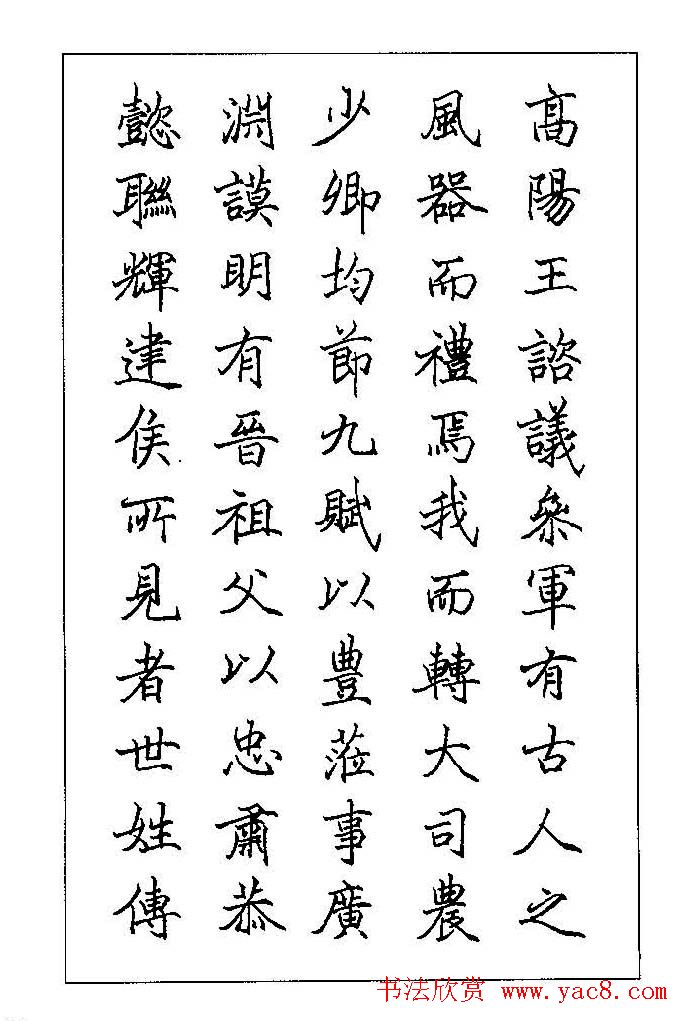 高陽王諮議叅軍有古人之
風器而禮焉我而轉大司農
少卿均節九賦以豊蒞事廣
淵謨明有晉祖父以忠肅恭
懿聯輝建侯所見者世姓傳
书法欣赏 www.yac8.com